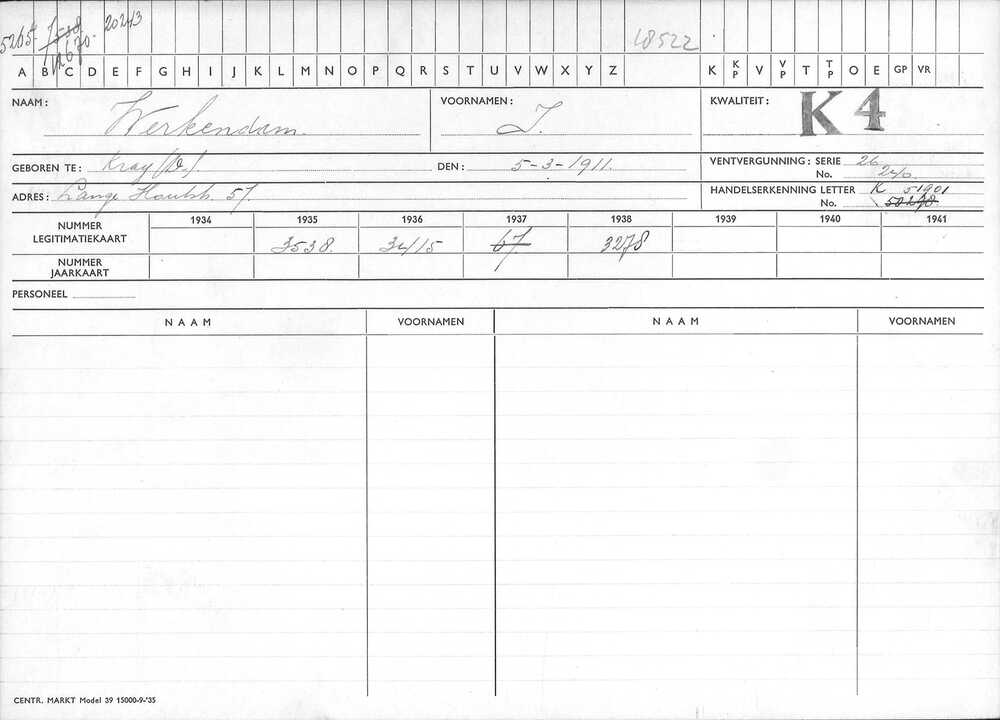 5265 1538 20243 18522
12670.
A B C D E F G H I J K L M N O P Q R S T U V W X Y Z K KP V VP T TP O E GP VR
NAAM: Werkendam. VOORNAMEN: I. KWALITEIT: K 4
GEBOREN TE: Kray (D). DEN: 5-3-1911. VENTVERGUNNING: SERIE 26
No. 240
ADRES: Lange Houtstr. 57. HANDELSERKENNING LETTER K 51901
No.
1934 1935 1936 1937 1938 1939 1940 1941
NUMMER LEGITIMATIEKAART 3538. 3415 67. 3278
NUMMER JAARKAART
PERSONEEL
NAAM VOORNAMEN NAAM VOORNAMEN
CENTR. MARKT Model 39 15000-9-'35